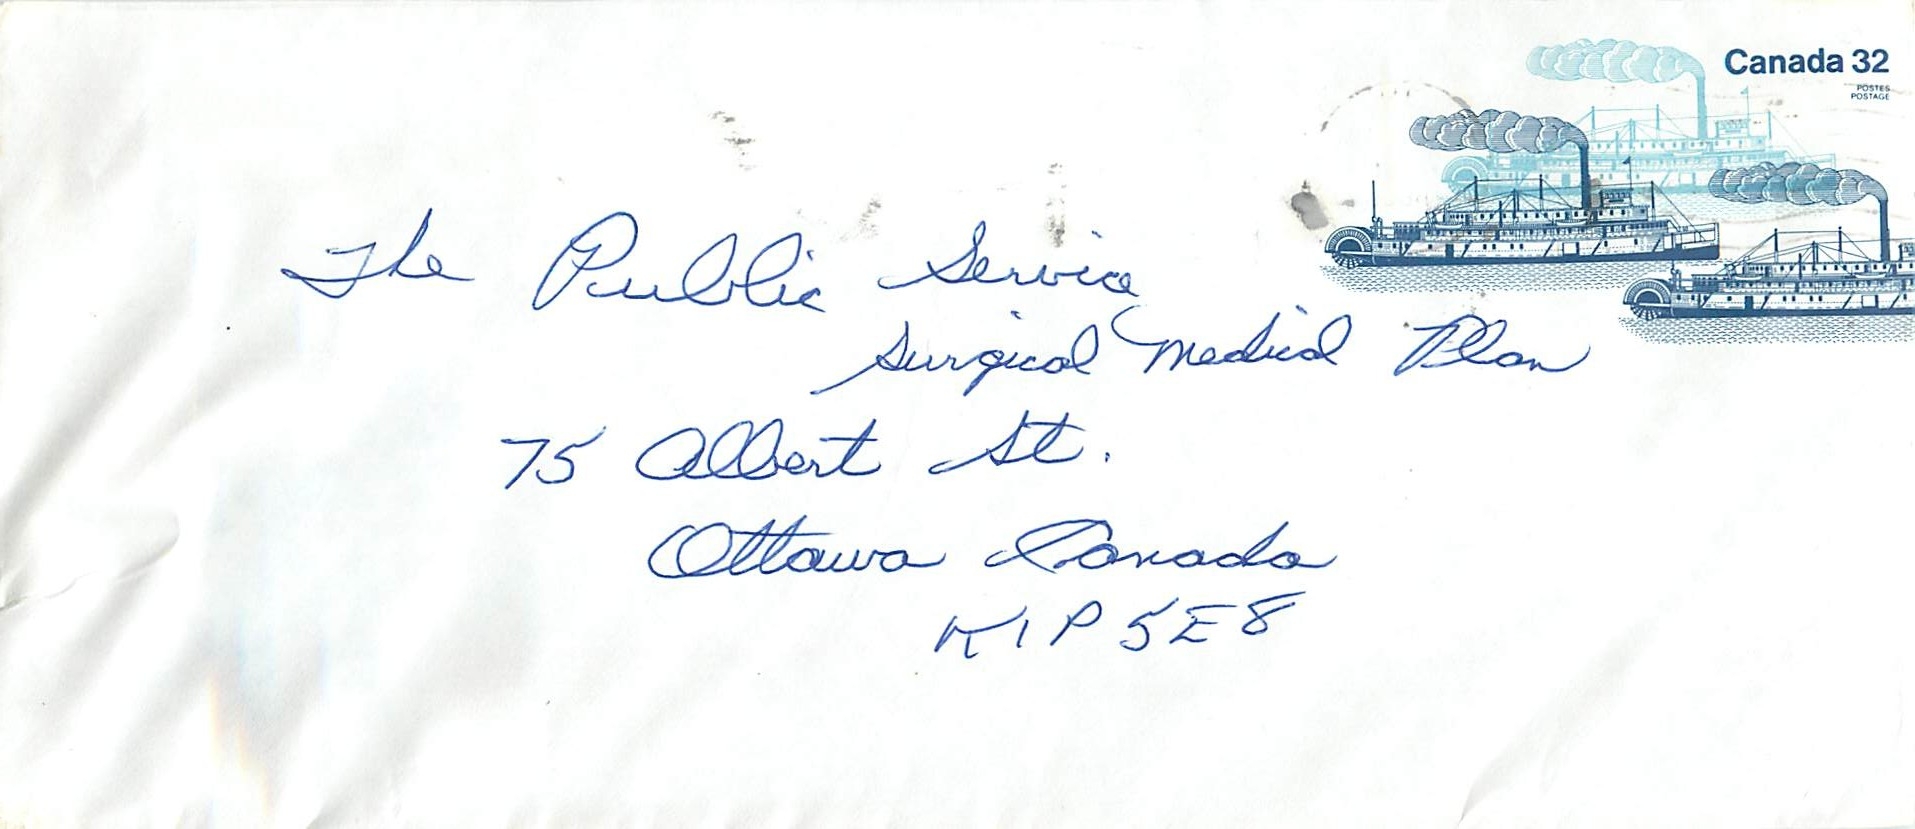 Canada 32
POSTES
POSTAGE
The Public Service
Surgical Medical Plan
75 Albert St.
Ottawa Canada
K1P 5E8